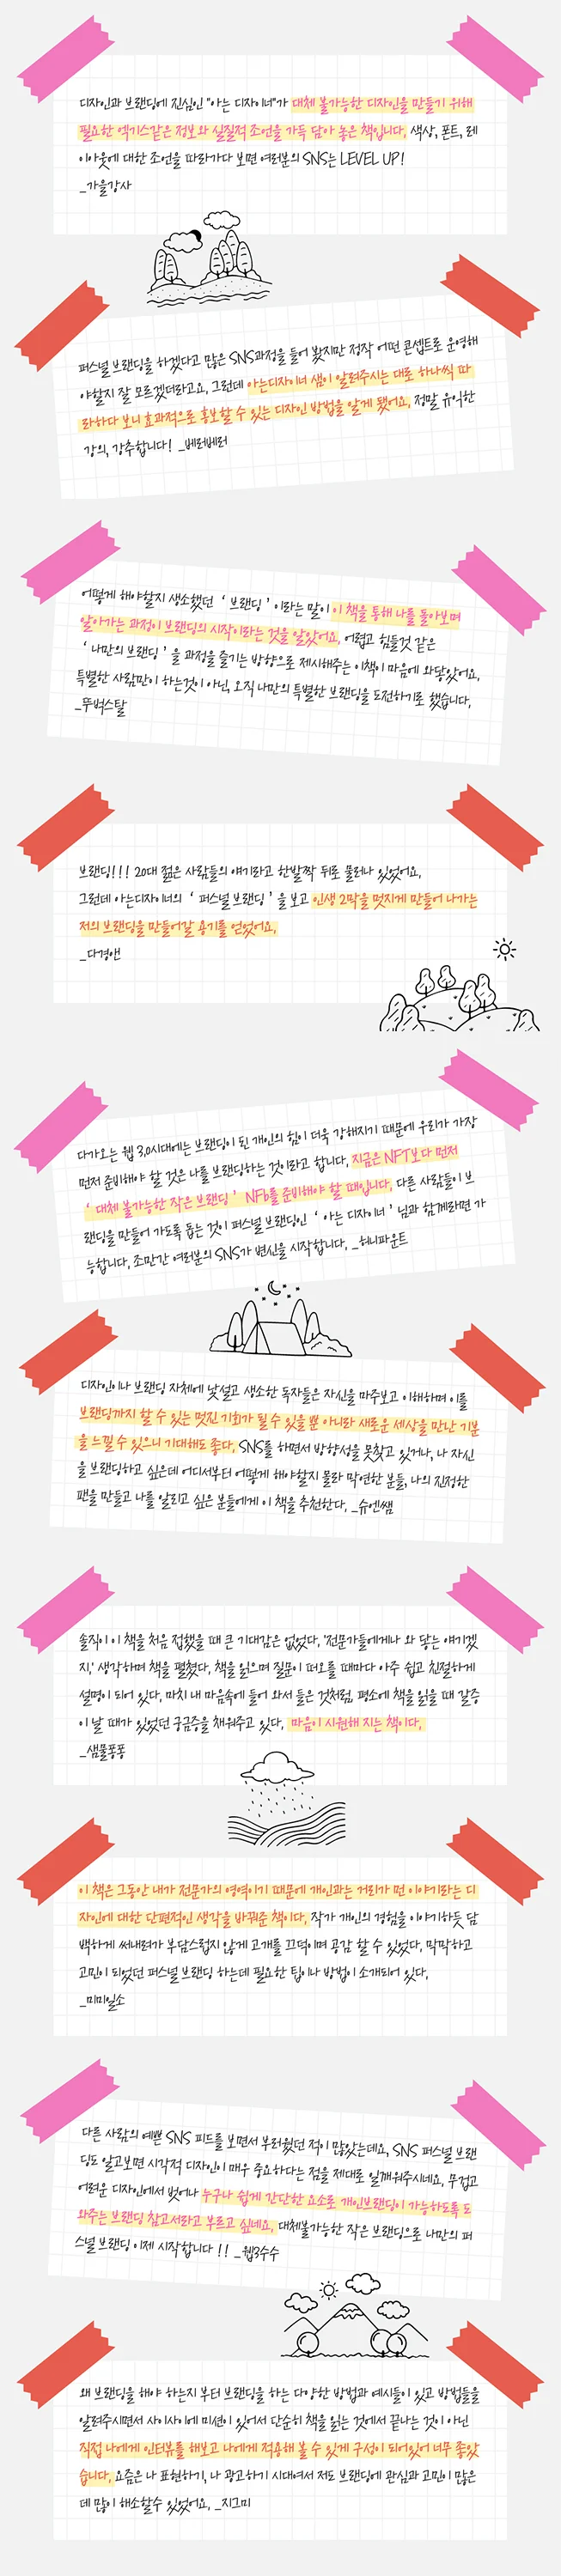 디자인과 브랜딩에 진심인 "아는 디자이너"가 대체 불가능한 디자인을 만들기 위해
필요한 엑기스같은 정보와 실질적 조언을 가득 담아 놓은 책입니다. 색상, 폰트, 레
이아웃에 대한 조언을 따라가다 보면 여러분의 SNS는 LEVEL UP!
_가을강사
퍼스널 브랜딩을 하겠다고 많은 SNS과정을 들어 봤지만 정작 어떤 콘셉트로 운영해
야할지 잘 모르겠더라고요. 그런데 아는디자이너 샘이 알려주시는 대로 하나씩 따
라하다 보니 효과적으로 홍보할 수 있는 디자인 방법을 알게 됐어요. 정말 유익한
강의, 강추합니다! _베러베러
어떻게 해야할지 생소했던 ' 브랜딩 ' 이라는 말이 이 책을 통해 나를 돌아보며
알아가는 과정이 브랜딩의 시작이라는 것을 알았어요. 어렵고 힘들것 같은
' 나만의 브랜딩 ' 을 과정을 즐기는 방향으로 제시해주는 이책이 마음에 와닿았어요.
특별한 사람만이 하는것이 아닌, 오직 나만의 특별한 브랜딩을 도전하기로 했습니다.
_뚜벅스탈
브랜딩!!! 20대 젊은 사람들의 얘기라고 한발짝 뒤로 물러나 있었어요.
그런데 아는디자이너의 ' 퍼스널 브랜딩 ' 을 보고 인생 2막을 멋지게 만들어 나가는
저의 브랜딩을 만들어갈 용기를 얻었어요.
_다경앤
다가오는 웹 3.0시대에는 브랜딩이 된 개인의 힘이 더욱 강해지기 때문에 우리가 가장
먼저 준비해야 할 것은 나를 브랜딩하는 것이라고 합니다. 지금은 NFT보다 먼저
' 대체 불가능한 작은 브랜딩 ' NFb를 준비해야 할 때입니다. 다른 사람들이 브
랜딩을 만들어 가도록 돕는 것이 퍼스널 브랜딩인 ' 아는 디자이너 ' 님과 함께라면 가
능합니다. 조만간 여러분의 SNS가 변신을 시작합니다. _허니파운트
디자인이나 브랜딩 자체에 낯설고 생소한 독자들은 자신을 마주보고 이해하며 이를
브랜딩까지 할 수 있는 멋진 기회가 될 수 있을 뿐 아니라 새로운 세상을 만난 기분
을 느낄 수 있으니 기대해도 좋다. SNS를 하면서 방향성을 못찾고 있거나, 나 자신
을 브랜딩하고 싶은데 어디서부터 어떻게 해야할지 몰라 막연한 분들, 나의 진정한
팬을 만들고 나를 알리고 싶은 분들에게 이 책을 추천한다. _슈엔쌤
솔직히 이 책을 처음 접했을 때 큰 기대감은 없었다. '전문가들에게나 와 닿는 얘기겠
지.' 생각하며 책을 펼쳤다. 책을 읽으며 질문이 떠오를 때마다 아주 쉽고 친절하게
설명이 되어 있다. 마치 내 마음속에 들어 와서 들은 것처럼. 평소에 책을 읽을 때 갈증
이 날 때가 있었던 궁금증을 채워주고 있다. 마음이 시원해 지는 책이다.
_샘물퐁퐁
이 책은 그동안 내가 전문가의 영역이기 때문에 개인과는 거리가 먼 이야기라는 디
자인에 대한 단편적인 생각을 바꿔준 책이다. 작가 개인의 경험을 이야기하듯 담
백하게 써내려가 부담스럽지 않게 고개를 끄덕이며 공감 할 수 있었다. 막막하고
고민이 되었던 퍼스널 브랜딩 하는데 필요한 팁이나 방법이 소개되어 있다.
_미미일소
다른 사람의 예쁜 SNS 피드를 보면서 부러웠던 적이 많았는데요, SNS 퍼스널 브랜
딩도 알고보면 시각적 디자인이 매우 중요하다는 점을 제대로 일깨워주시네요. 무겁고
어려운 디자인에서 벗어나 누구나 쉽게 간단한 요소로 개인브랜딩이 가능하도록 도
와주는 브랜딩 참고서라고 부르고 싶네요. 대체불가능한 작은 브랜딩으로 나만의 퍼
스널 브랜딩 이제 시작합니다 !! _웹3수수
왜 브랜딩을 해야 하는지 부터 브랜딩을 하는 다양한 방법과 예시들이 있고 방법들을
알려주시면서 사이사이에 미션이 있어서 단순히 책을 읽는 것에서 끝나는 것이 아닌
직접 나에게 인터뷰를 해보고 나에게 적용해 볼 수 있게 구성이 되어있어 너무 좋았
습니다. 요즘은 나 표현하기, 나 광고하기 시대여서 저도 브랜딩에 관심과 고민이 많은
데 많이 해소할수 있었어요. _지그미